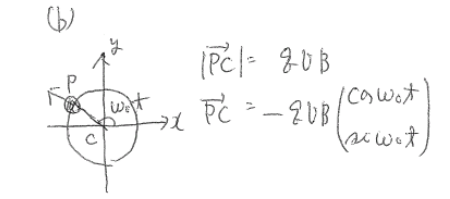 (b)
y
P
ω₀t
x
C
|PC→| = qvB
PC→ = -qvB (cos ω₀t
sin ω₀t)